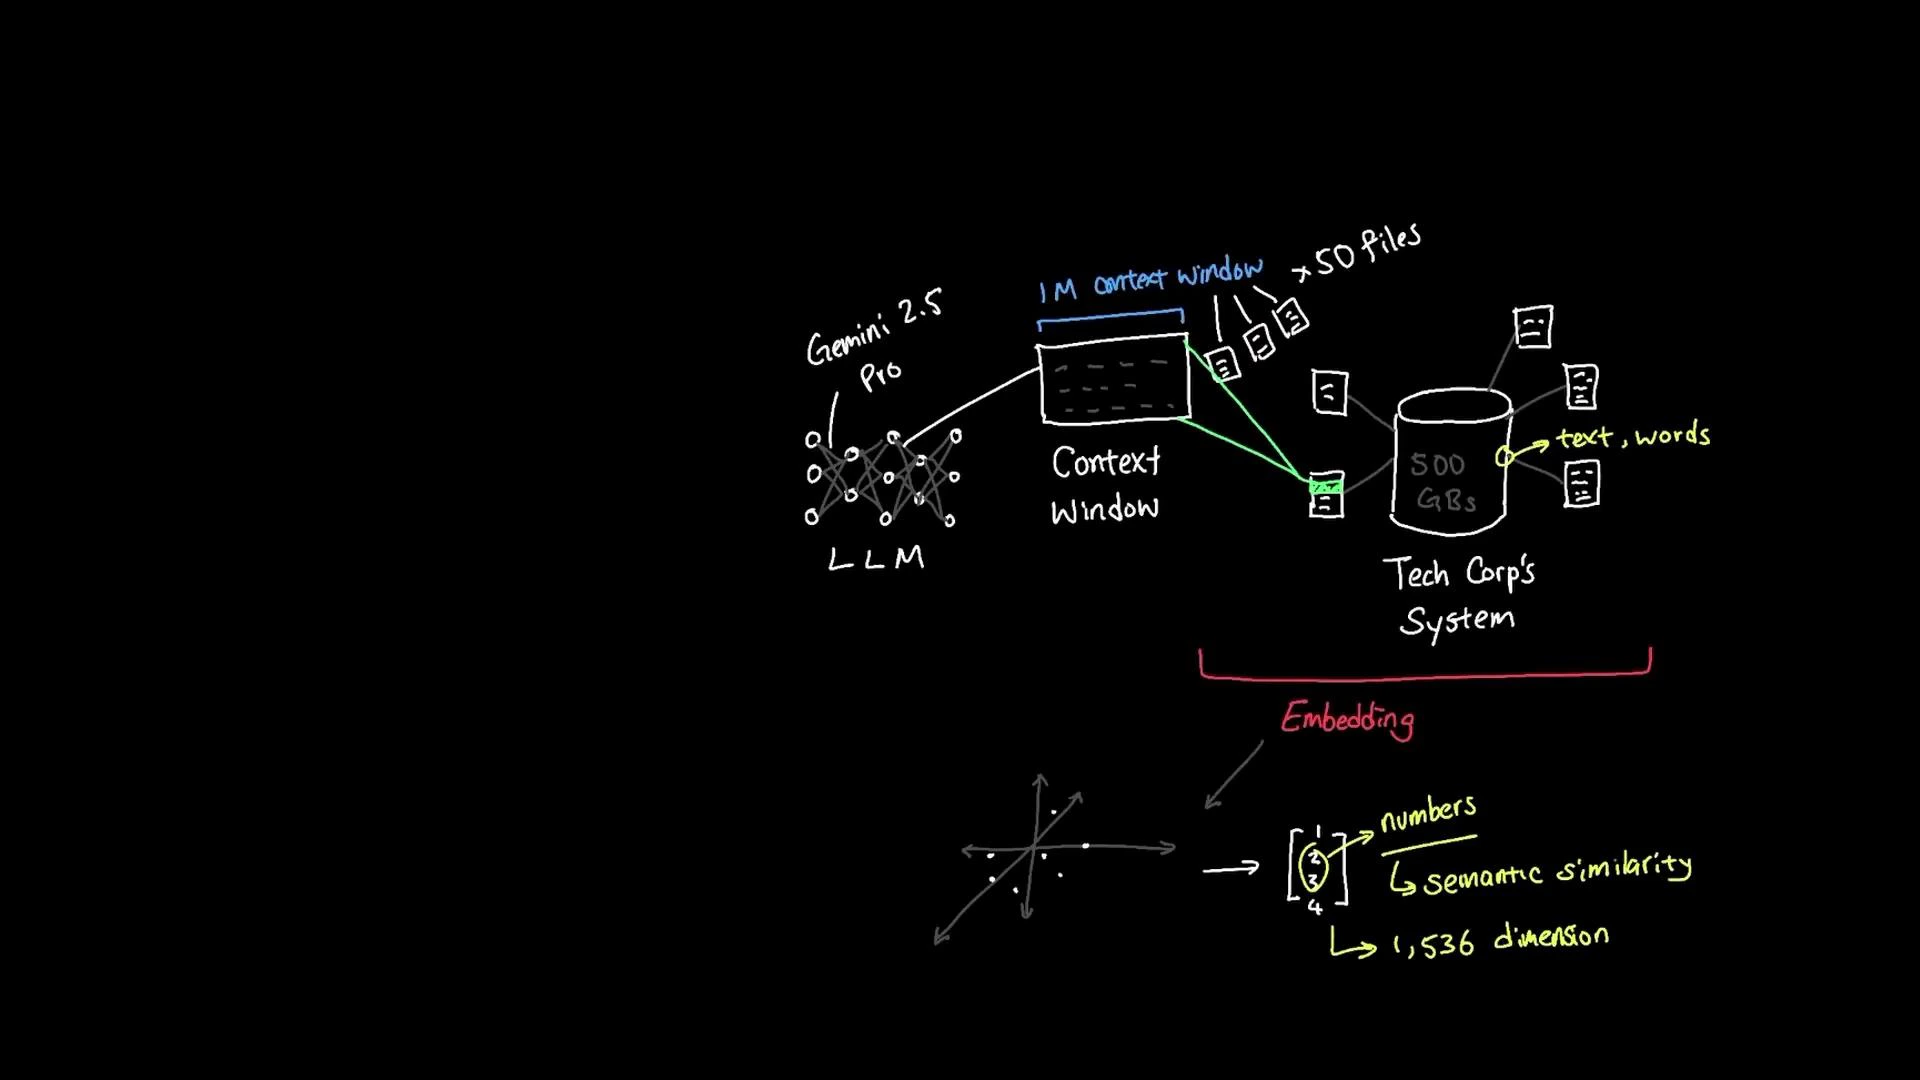 Gemini 2.5
Pro
LLM
1M context window
x50 files
Context
Window
500
GBs
text, words
Tech Corp's
System
Embedding
1
2
3
4
numbers
semantic similarity
1,536 dimension